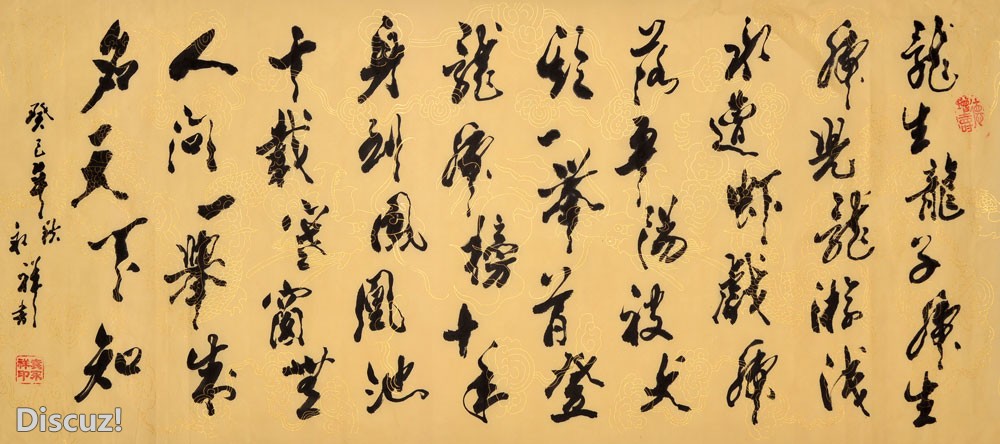 龍生龍子虎生
虎兒龍游淺
水遭蝦戲虎
落平陽被犬
欺一舉首登
龍虎榜十年
身到鳳凰池
十載寒窗無
人問一舉成
名天下知
癸巳年秋
永祥書
Discuz!